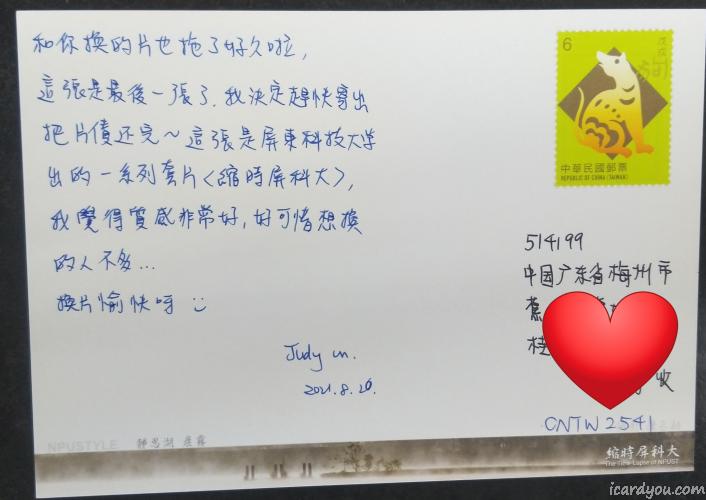 和你換的片也拖了好久啦,
這張是最後一張了.我決定趕快寄出
把片債还完~這張是屏東科技大学
出的一系列套片<縮時屏科大>,
我覺得質感非常好,好可惜想換
的人不多...
換片愉快呀
Judy
2021.8.20.
6
戊戌
中華民國郵票
REPUBLIC OF CHINA (TAIWAN)
514199
中国广东省梅州市
蕉
桂
收
CNTW2541
NPUSTYLE 靜思湖 晨霧
縮時屏科大
The Time-Lapse of NPUST
icardyou.com